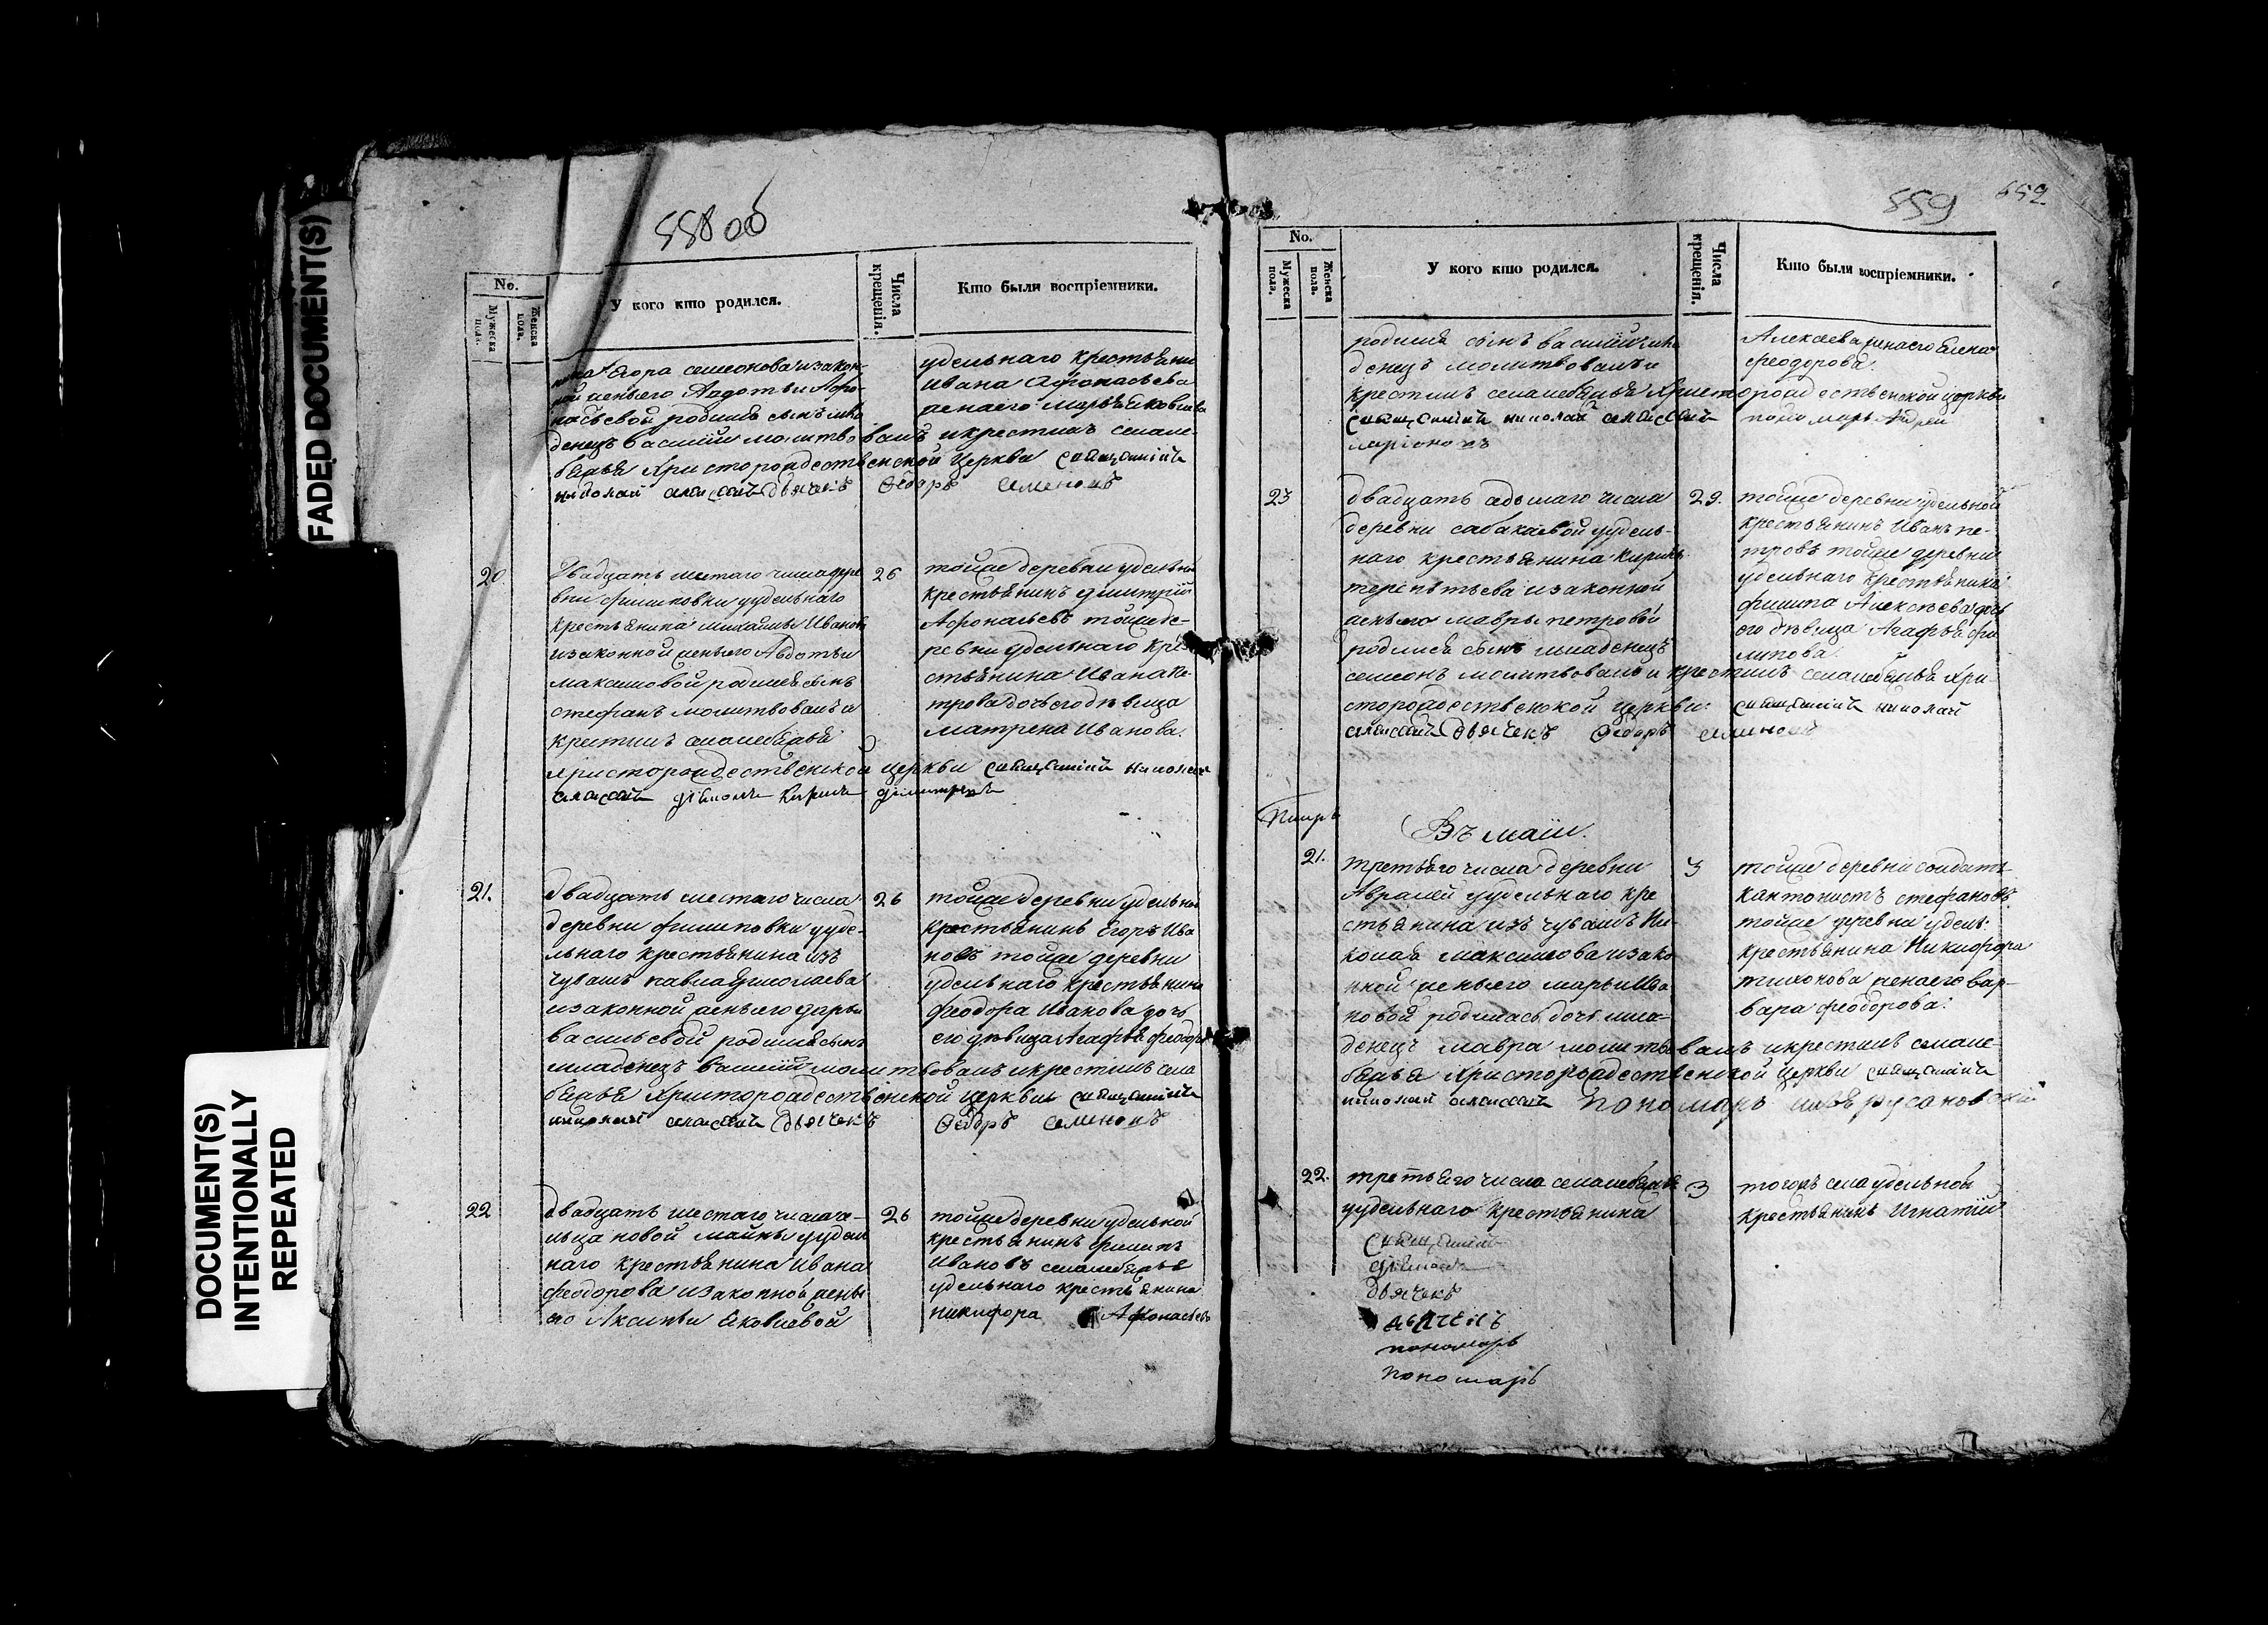 FADED DOCUMENT(S)
DOCUMENT(S)
INTENTIONALLY
REPEATED
558 об
No.
Мужеска пола.
Женска пола.
У кого кто родился.
Числа крещенія.
Кто были воспріемники.
Егора семеонова изакон-
ной жены его Авдотьи Афо-
насьевой родился сынъ мла
денецъ василий молитвовалъ икрестилъ села ме-
Христорождественской церкви священникъ
николай дьячекъ Ѳедоръ семеновъ
удельнаго крестьяни
Ивана Афонасьева
жена его Марья Яковлева
20
Двадцать шестаго числа дере
вни филиповки уудельнаго
крестьянина михайлы Иванова
изаконной жены его Авдотьи
максимовой родился сынъ
стефанъ молитвовалъ и
крестилъ села
христорождественской церкви священникъ николай
дьяконъ Кирилъ димитревъ
26
тойже деревни удельной
крестьянинъ димитрий
Афонасьевъ тойже де-
ревни удельнаго кре-
стьянина Ивана пе-
трова дочь его девица
матрена Иванова.
21.
двадцать шестаго числа
деревни филиповки ууде-
льнаго крестьянина изъ
чувашъ павла
изаконной жены его дарьи
васильевой родился сынъ
младенецъ василий молитвовалъ икрестилъ села
Христорождественской церкви священникъ
николай дьячекъ Ѳедоръ семеновъ
26
тойже деревни удельной
крестьянинъ Егоръ Ива
новъ тойже деревни
удельнаго крестьянина
феодора Иванова дочь
его девица Агафья феодор
22
двадцать шестаго числа се-
льца новой майны уудель
наго крестьянина Ивана
феодорова изаконной жены
его Аксиньи Яковлевой
26
тойже деревни удельной
крестьянинъ филипъ
Ивановъ села
удельнаго крестьянина
никифора Афонасьева
559
No.
Мужеска пола.
Женска пола.
У кого кто родился.
Числа крещенія.
Кто были воспріемники.
родился сынъ василий мла
денецъ молитвовалъ и
крестилъ села Христорождественской церкви
священникъ николай пономарь Андрей
Алексеева жена его Елена
феодорова.
23
двадцать адьмаго числа
деревни сабакаевой уудель-
наго крестьянина Кирилы
терентьева изаконной
жены его мавры петровой
родился сынъ младенецъ
семеонъ молитвовалъ и крестилъ села Хри-
сторождественской церкви священникъ николай
дьячекъ Ѳедоръ семеновъ
29.
тойже деревни удельной
крестьянинъ Иванъ пе-
тровъ тойже деревни
удельнаго крестьянина
филипа Алексеева дочь
его девица Агафья фи
липова.
Въ маии.
21.
третьяго числа деревни
Авралей уудельнаго кре
стьянина изъ чувашъ Ни-
колая максимова изако
нной жены его марьи Ива
новой родилась дочь мла-
денецъ мавра молитвовалъ икрестилъ села
Христорождественской церкви священникъ
николай пономарь
3
тойже деревни солдатъ
кантонистъ стефановъ
тойже деревни удель:
крестьянина Никифора
тихонова жена его вар-
вара феодорова.
22.
третьяго числа села
уудельнаго крестьянина
священникъ
дьяконъ
дьячекъ
дьячекъ
пономарь
пономарь
3
тогожъ села удельной
крестьянинъ Игнатий